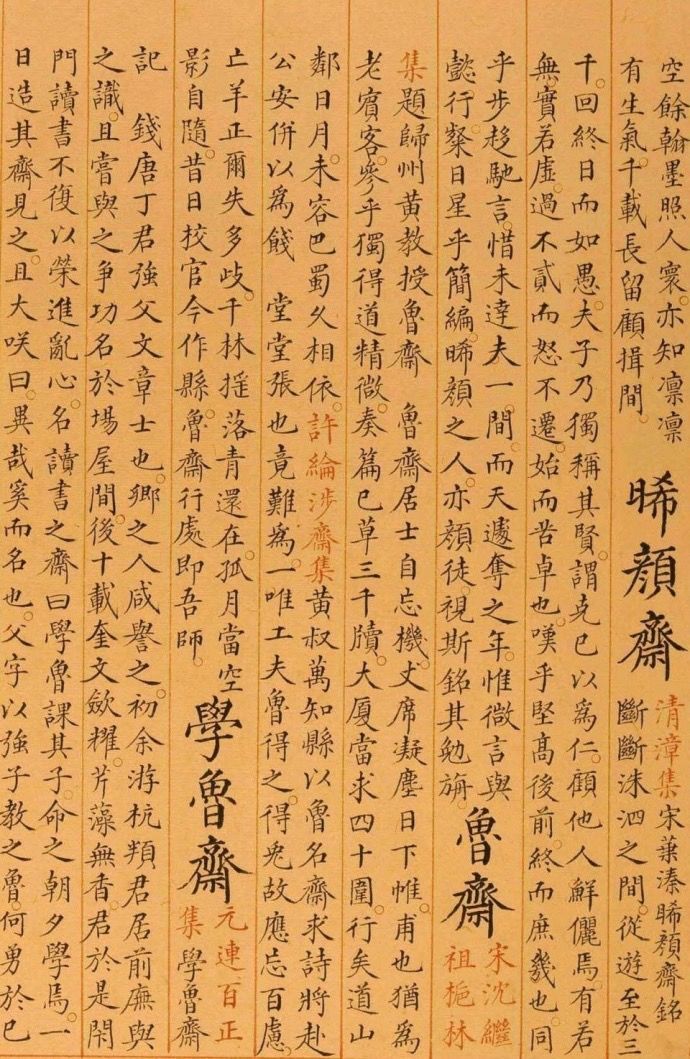 空餘翰墨照人寰亦知凛凛
有生氣千載長留顧揖間
晞顔齋
清漳集宋葉溱晞顔齋銘
斷斷洙泗之間從遊至於三
千回終日而如愚夫子乃獨稱其賢謂克己以為仁顧他人鮮儷焉有若
無實若虛過不貳而怒不遷始而苦卓也嘆乎堅髙後前終而庶幾也同
乎步趍馳言惜未達夫一間而天遽奪之年惟微言與
懿行粲日星乎簡編晞顔之人亦顔徒視斯銘其勉旃
魯齋
宋沈繼
祖梔林
集題歸州黄教授魯齋　魯齋居士自忘機丈席凝塵日下帷甫也猶為
老賓客參乎獨得道精微奏篇已草三千牘大厦當求四十圍行矣道山
鄰日月未容巴蜀久相依許綸涉齋集黄叔萬知縣以魯名齋求詩將赴
公安併以為餞　堂堂張也竟難為一唯工夫魯得之得兎故應忘百慮
亡羊正爾失多歧千林揺落青還在孤月當空
影自隨昔日校官今作縣魯齋行處即吾師
學魯齋
元連百正
集學魯齋
記　錢唐丁君強父文章士也鄉之人咸譽之初余游杭頖君居前廡與
之識且嘗與之争功名於場屋間後十載奎文歛耀芹藻無香君於是閉
門讀書不復以榮進亂心名讀書之齋曰學魯課其子命之朝夕學焉一
日造其齋見之且大咲曰異哉奚而名也父字以強子教之魯何勇於己